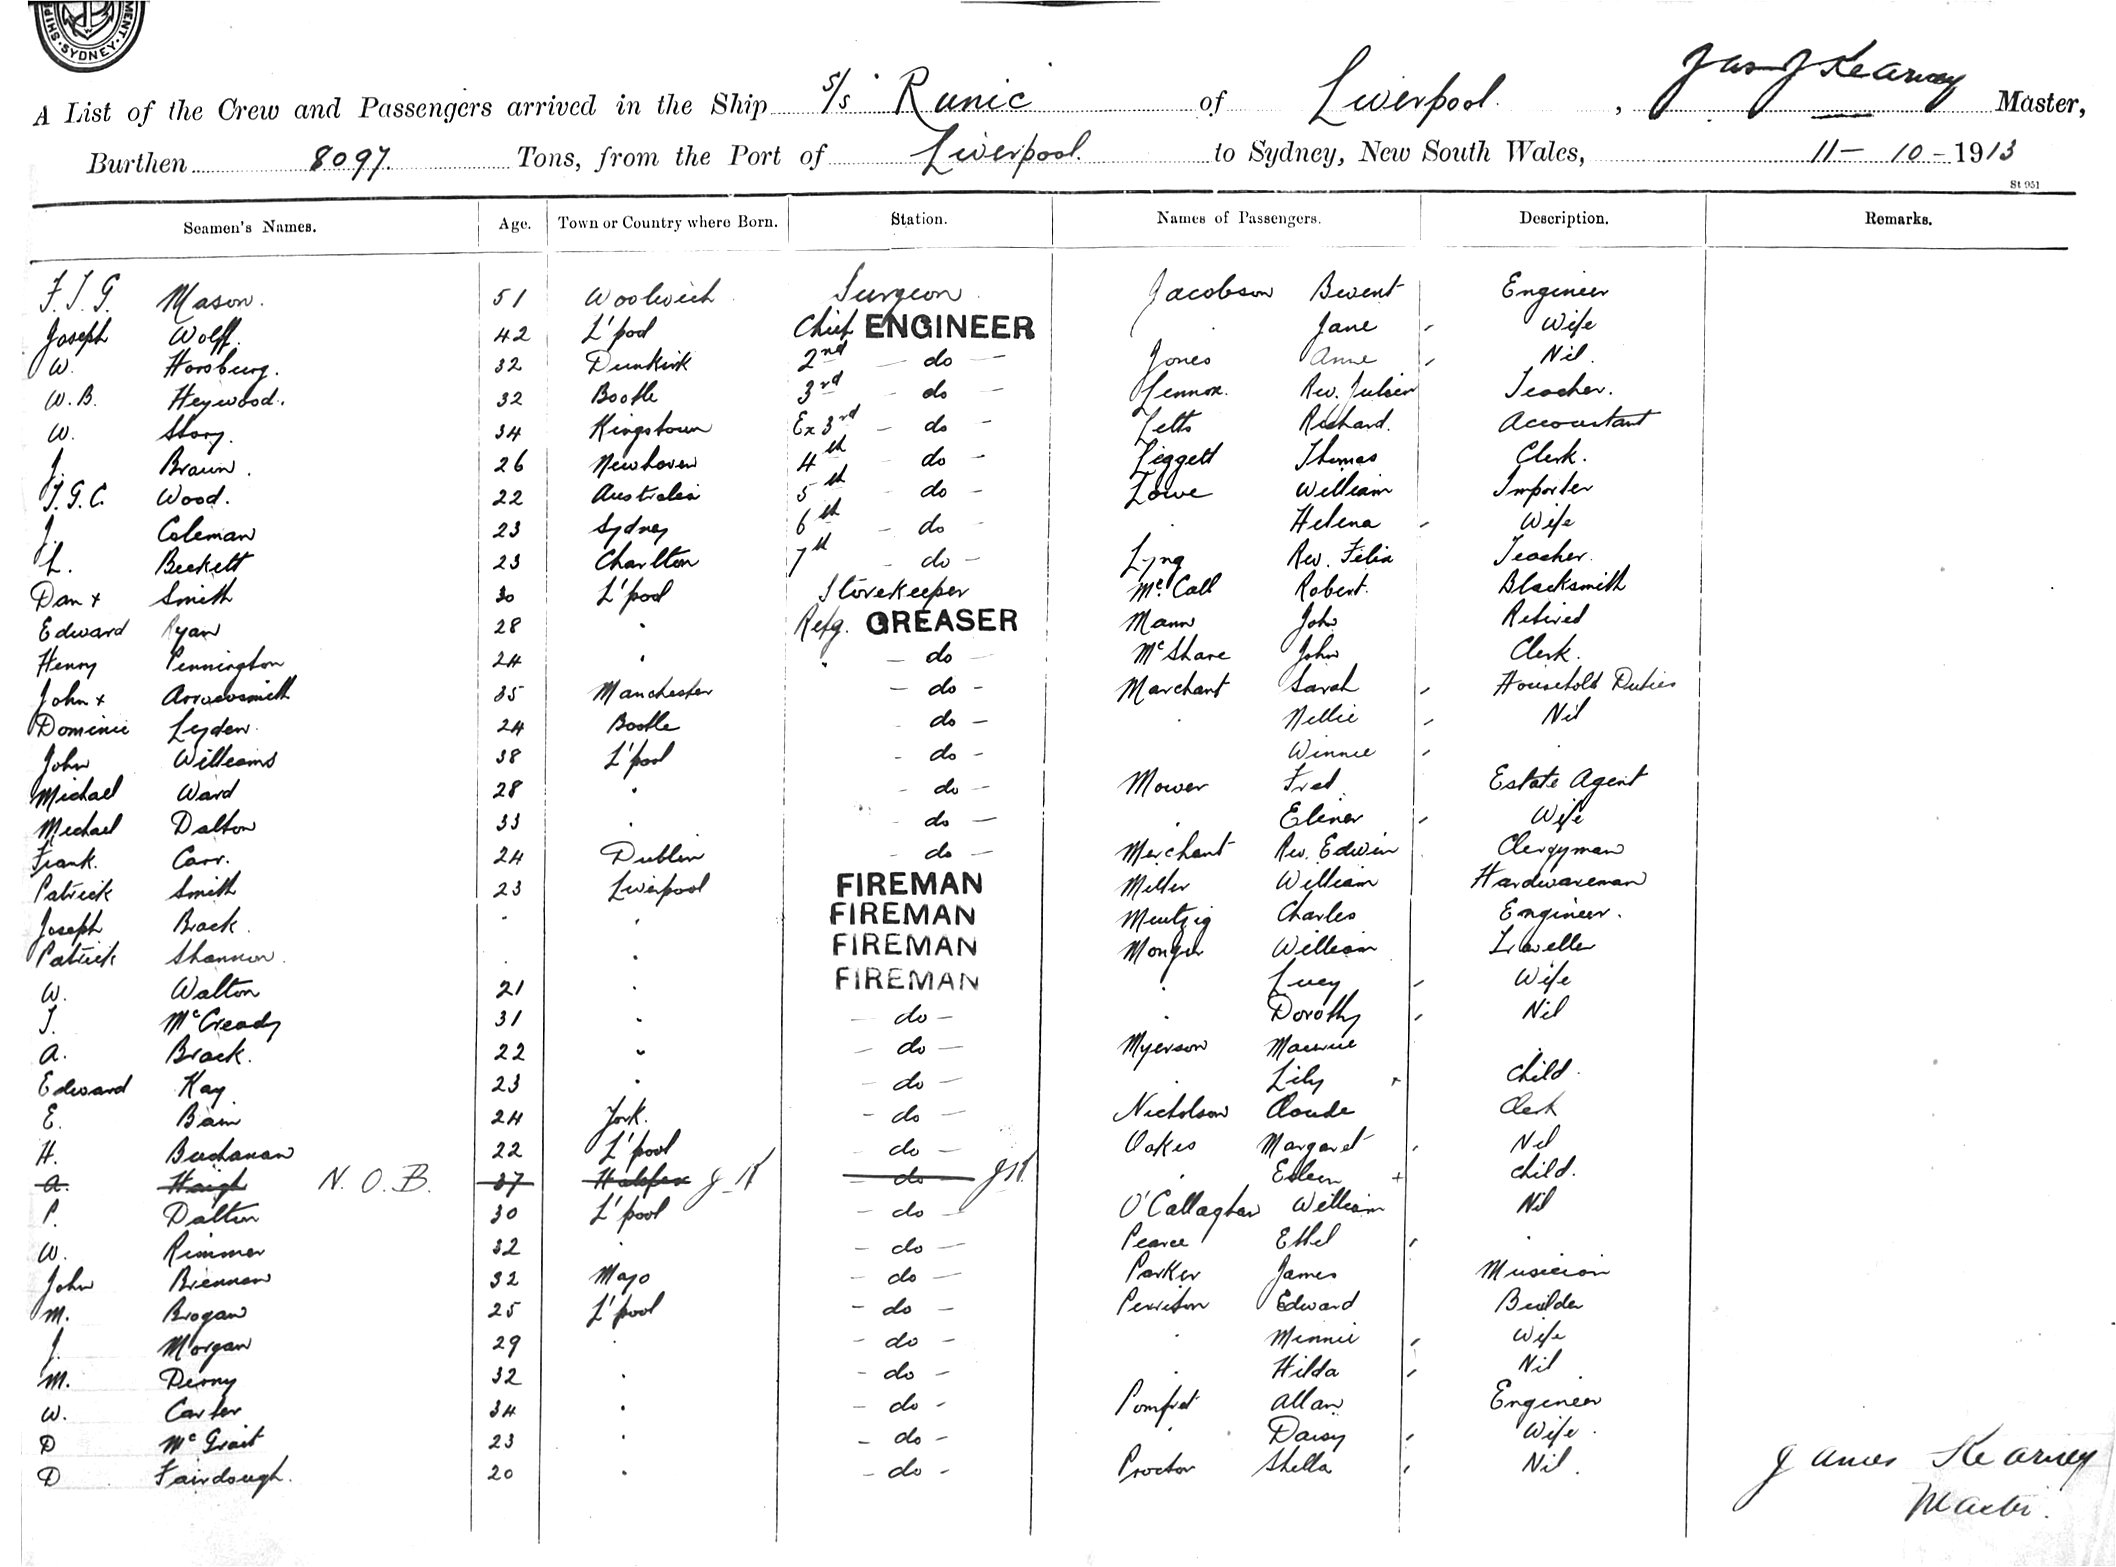 SYDNEY
A List of the Crew and Passengers arrived in the Ship S/S Runic of Liverpool, Jas J Kearney Master,
Burthen 8097 Tons, from the Port of Liverpool to Sydney, New South Wales, 11-10-1913
St 951
Seamen's Names. Age. Town or Country where Born. Station. Names of Passengers. Description. Remarks.
F. J. G. Mason. 51 Woolwich Surgeon Jacobson Bevent Engineer
Joseph Wolff. 42 L'pool Chief ENGINEER " Jane " Wife
W. Horsburg. 32 Dunkirk 2nd - do - Jones Anne " Nil.
W. B. Heywood. 32 Bootle 3rd - do - Lennox. Rev. Julian Teacher.
W. Story. 34 Kingstown Ex 3rd - do - Letts Richard. Accountant
J. Braun. 26 Newhaven 4th do - Leggett Thomas Clerk.
T. G. C. Wood. 22 Australia 5th do - Lowe William Importer
J. Coleman 23 Sydney 6th - do - " Helena " Wife
L. Beckett 23 Charlton 7th - do - Lyng Rev. Felix Teacher.
Dan x Smith 30 L'pool Storekeeper McCall Robert. Blacksmith
Edward Ryan 28 " Refg. GREASER Mann John Retired
Henry Pennington 24 " " - do - McShane John Clerk.
John x Arrowsmith 35 Manchester - do - Marchant Sarah " Household Duties
Dominic Leyden. 24 Bootle - do - " Nellie " Nil
John Williams 38 L'pool - do - " Winnie " "
Michael Ward 28 " - do - Mower Fred. Estate Agent
Michael Dalton 33 " - do - " Elinor " Wife
Frank. Carr. 24 Dublin - do - Merchant Rev. Edwin Clergyman
Patrick Smith 23 Liverpool FIREMAN Miller William Hardwareman
Joseph Brack. " " FIREMAN Charles Engineer.
Patrick Shannon. " " FIREMAN Monger William Traveller
W. Walton 21 " FIREMAN " Lucy " Wife
T. McCready 31 " - do - " Dorothy " Nil
A. Brack. 22 " - do - Myerson Maurice "
Edward Kay 23 " - do - " Lily + Child.
E. Bain 24 York. - do - Nicholson Claude Clerk
H. Buchanan 22 L'pool - do - Oakes Margaret " Nil
A. Haigh N. O. B. 37 Halifax J K - do - JK. " Eileen + Child.
P. Dalton 30 L'pool - do - O'Callaghan William Nil
W. Rimmer 32 " - do - Pearce Ethel " "
John Brennan 32 Mayo - do - Parker James Musician
M. Brogan 25 L'pool - do - Edward Builder
J. Morgan 29 " - do - " Minnie " Wife
M. 32 " - do - " Hilda " Nil
W. Carter 34 " - do - Pomfret Allan Engineer
D McGrait 23 " - do - " Daisy " Wife.
D Fairclough. 20 " - do - Proctor Stella " Nil.
James Kearney
Master.